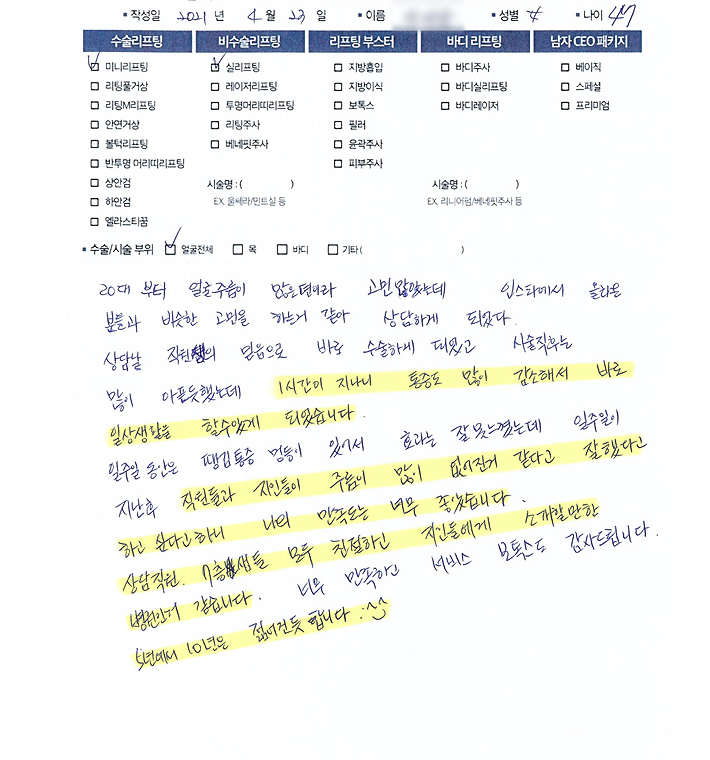 ▪ 작성일 2021 년 4 월 23 일 ▪ 이름 ▪ 성별 ▪ 나이 47
수술리프팅 비수술리프팅 리프팅 부스터 바디 리프팅 남자 CEO 패키지
미니리프팅 실리프팅 지방흡입 바디주사 베이직
리팅풀거상 레이저리프팅 지방이식 바디실리프팅 스페셜
리팅M리프팅 투명머리띠리프팅 보톡스 바디레이저 프리미엄
안면거상 리팅주사 필러
볼턱리프팅 베네핏주사 윤곽주사
반투명 머리띠리프팅 피부주사
상안검 시술명 : ( ) 시술명 : ( )
하안검 EX. 울쎄라/민트실 등 EX. 리니어펌/베네핏주사 등
엘라스티꿈
▪ 수술/시술 부위 얼굴전체 목 바디 기타 ( )
20대 부터 얼굴주름이 많은편이라 고민많았는데 인스타에서 올라온
분들과 비슷한 고민을 하는거 같아 상담하게 되었다.
상담날 직원의 믿음으로 바로 수술하게 되었고 시술직후는
많이 아픈듯했는데 1시간이 지나니 통증도 많이 감소해서 바로
일상생활을 할수있게 되었습니다.
일주일 동안은 땡김통증 멍등이 있어서 효과는 잘 못느꼈는데 일주일이
지난후 직원들과 지인들이 주름이 많이 없어진거 같다고 잘했다고
하고 싶다고하니 나의 만족도는 너무 좋았습니다.
상담직원. 7층샘들 모두 친절하고 지인들에게 소개할만한
병원인거 같습니다. 너무 만족하고 서비스 보톡스도 감사드립니다.
5년에서 10년은 젊어진듯 합니다 :^^